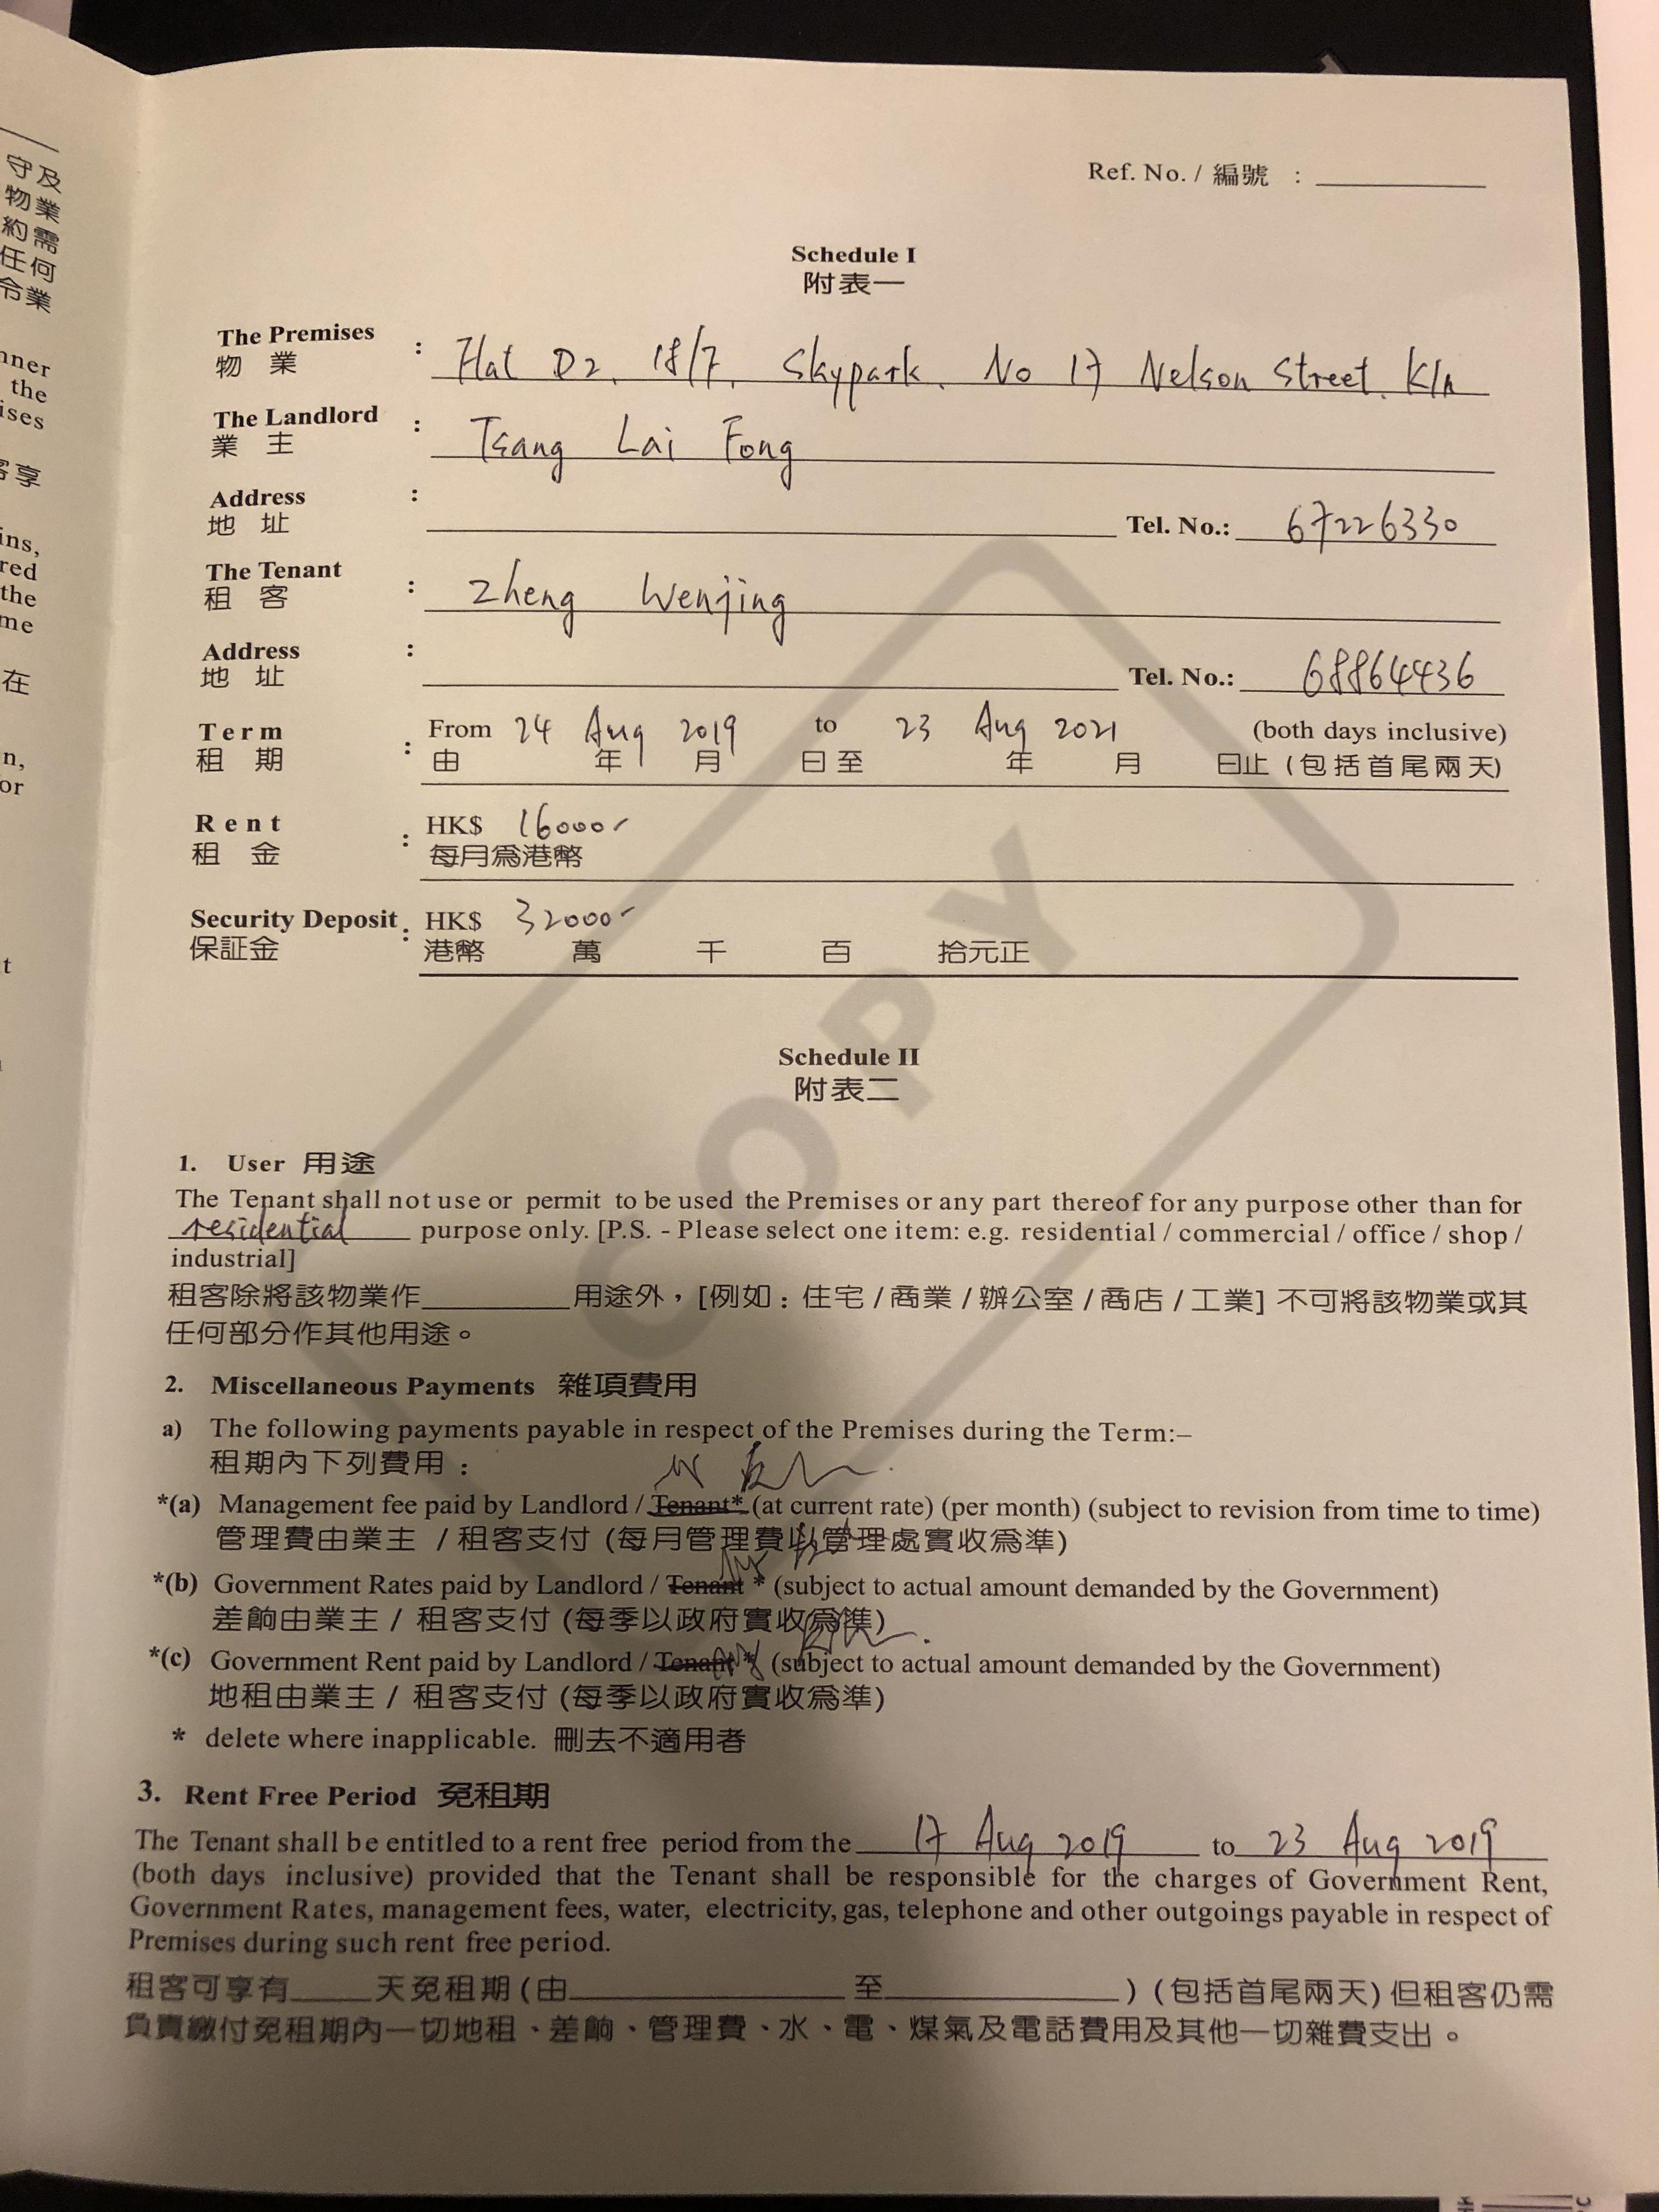 守及
物業
約需
任何
令業
nner
the
ises
客享
ins,
red
the
me
在
n,
or
t
Ref. No. / 編號 :
Schedule I
附表一
The Premises
物 業
: Flat D2, 18/F, Skypark, No 17 Nelson Street, Kln
The Landlord
業 主
: Tsang Lai Fong
Address
地 址
:
Tel. No.: 67226330
The Tenant
租 客
: Zheng Wenjing
Address
地 址
:
Tel. No.: 68864436
Term
租 期
: From 24 Aug 2019 to 23 Aug 2021 (both days inclusive)
由 年 月 日至 年 月 日止 (包括首尾兩天)
Rent
租 金
: HK$ 16000-
每月為港幣
Security Deposit
保証金
: HK$ 32000-
港幣 萬 千 百 拾元正
COPY
Schedule II
附表二
1. User 用途
The Tenant shall not use or permit to be used the Premises or any part thereof for any purpose other than for
residential purpose only. [P.S. - Please select one item: e.g. residential / commercial / office / shop /
industrial]
租客除將該物業作_________用途外，[例如：住宅 / 商業 / 辦公室 / 商店 / 工業] 不可將該物業或其
任何部分作其他用途。
2. Miscellaneous Payments 雜項費用
a) The following payments payable in respect of the Premises during the Term:–
租期內下列費用：
*(a) Management fee paid by Landlord / Tenant* (at current rate) (per month) (subject to revision from time to time)
管理費由業主 / 租客支付 (每月管理費以管理處實收為準)
*(b) Government Rates paid by Landlord / Tenant * (subject to actual amount demanded by the Government)
差餉由業主 / 租客支付 (每季以政府實收為準)
*(c) Government Rent paid by Landlord / Tenant * (subject to actual amount demanded by the Government)
地租由業主 / 租客支付 (每季以政府實收為準)
* delete where inapplicable. 刪去不適用者
3. Rent Free Period 免租期
The Tenant shall be entitled to a rent free period from the 17 Aug 2019 to 23 Aug 2019
(both days inclusive) provided that the Tenant shall be responsible for the charges of Government Rent,
Government Rates, management fees, water, electricity, gas, telephone and other outgoings payable in respect of
Premises during such rent free period.
租客可享有_____天免租期 (由_________________至_______________) (包括首尾兩天) 但租客仍需
負責繳付免租期內一切地租、差餉、管理費、水、電、煤氣及電話費用及其他一切雜費支出。